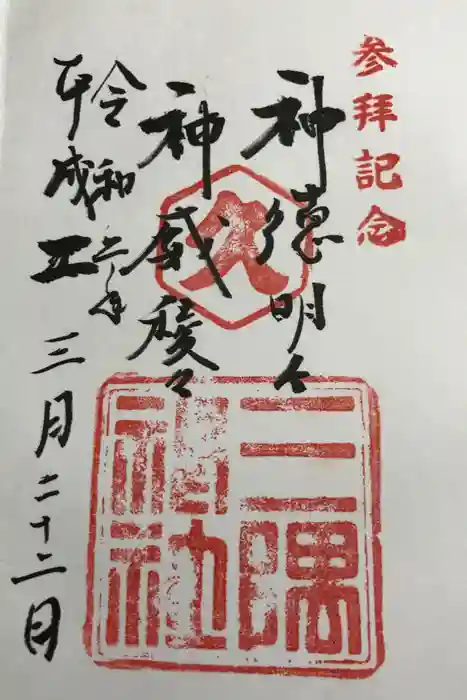 参拝記念
神徳明々
神威稜々
令和年
平成
三月二十二日
久
三隅
神社